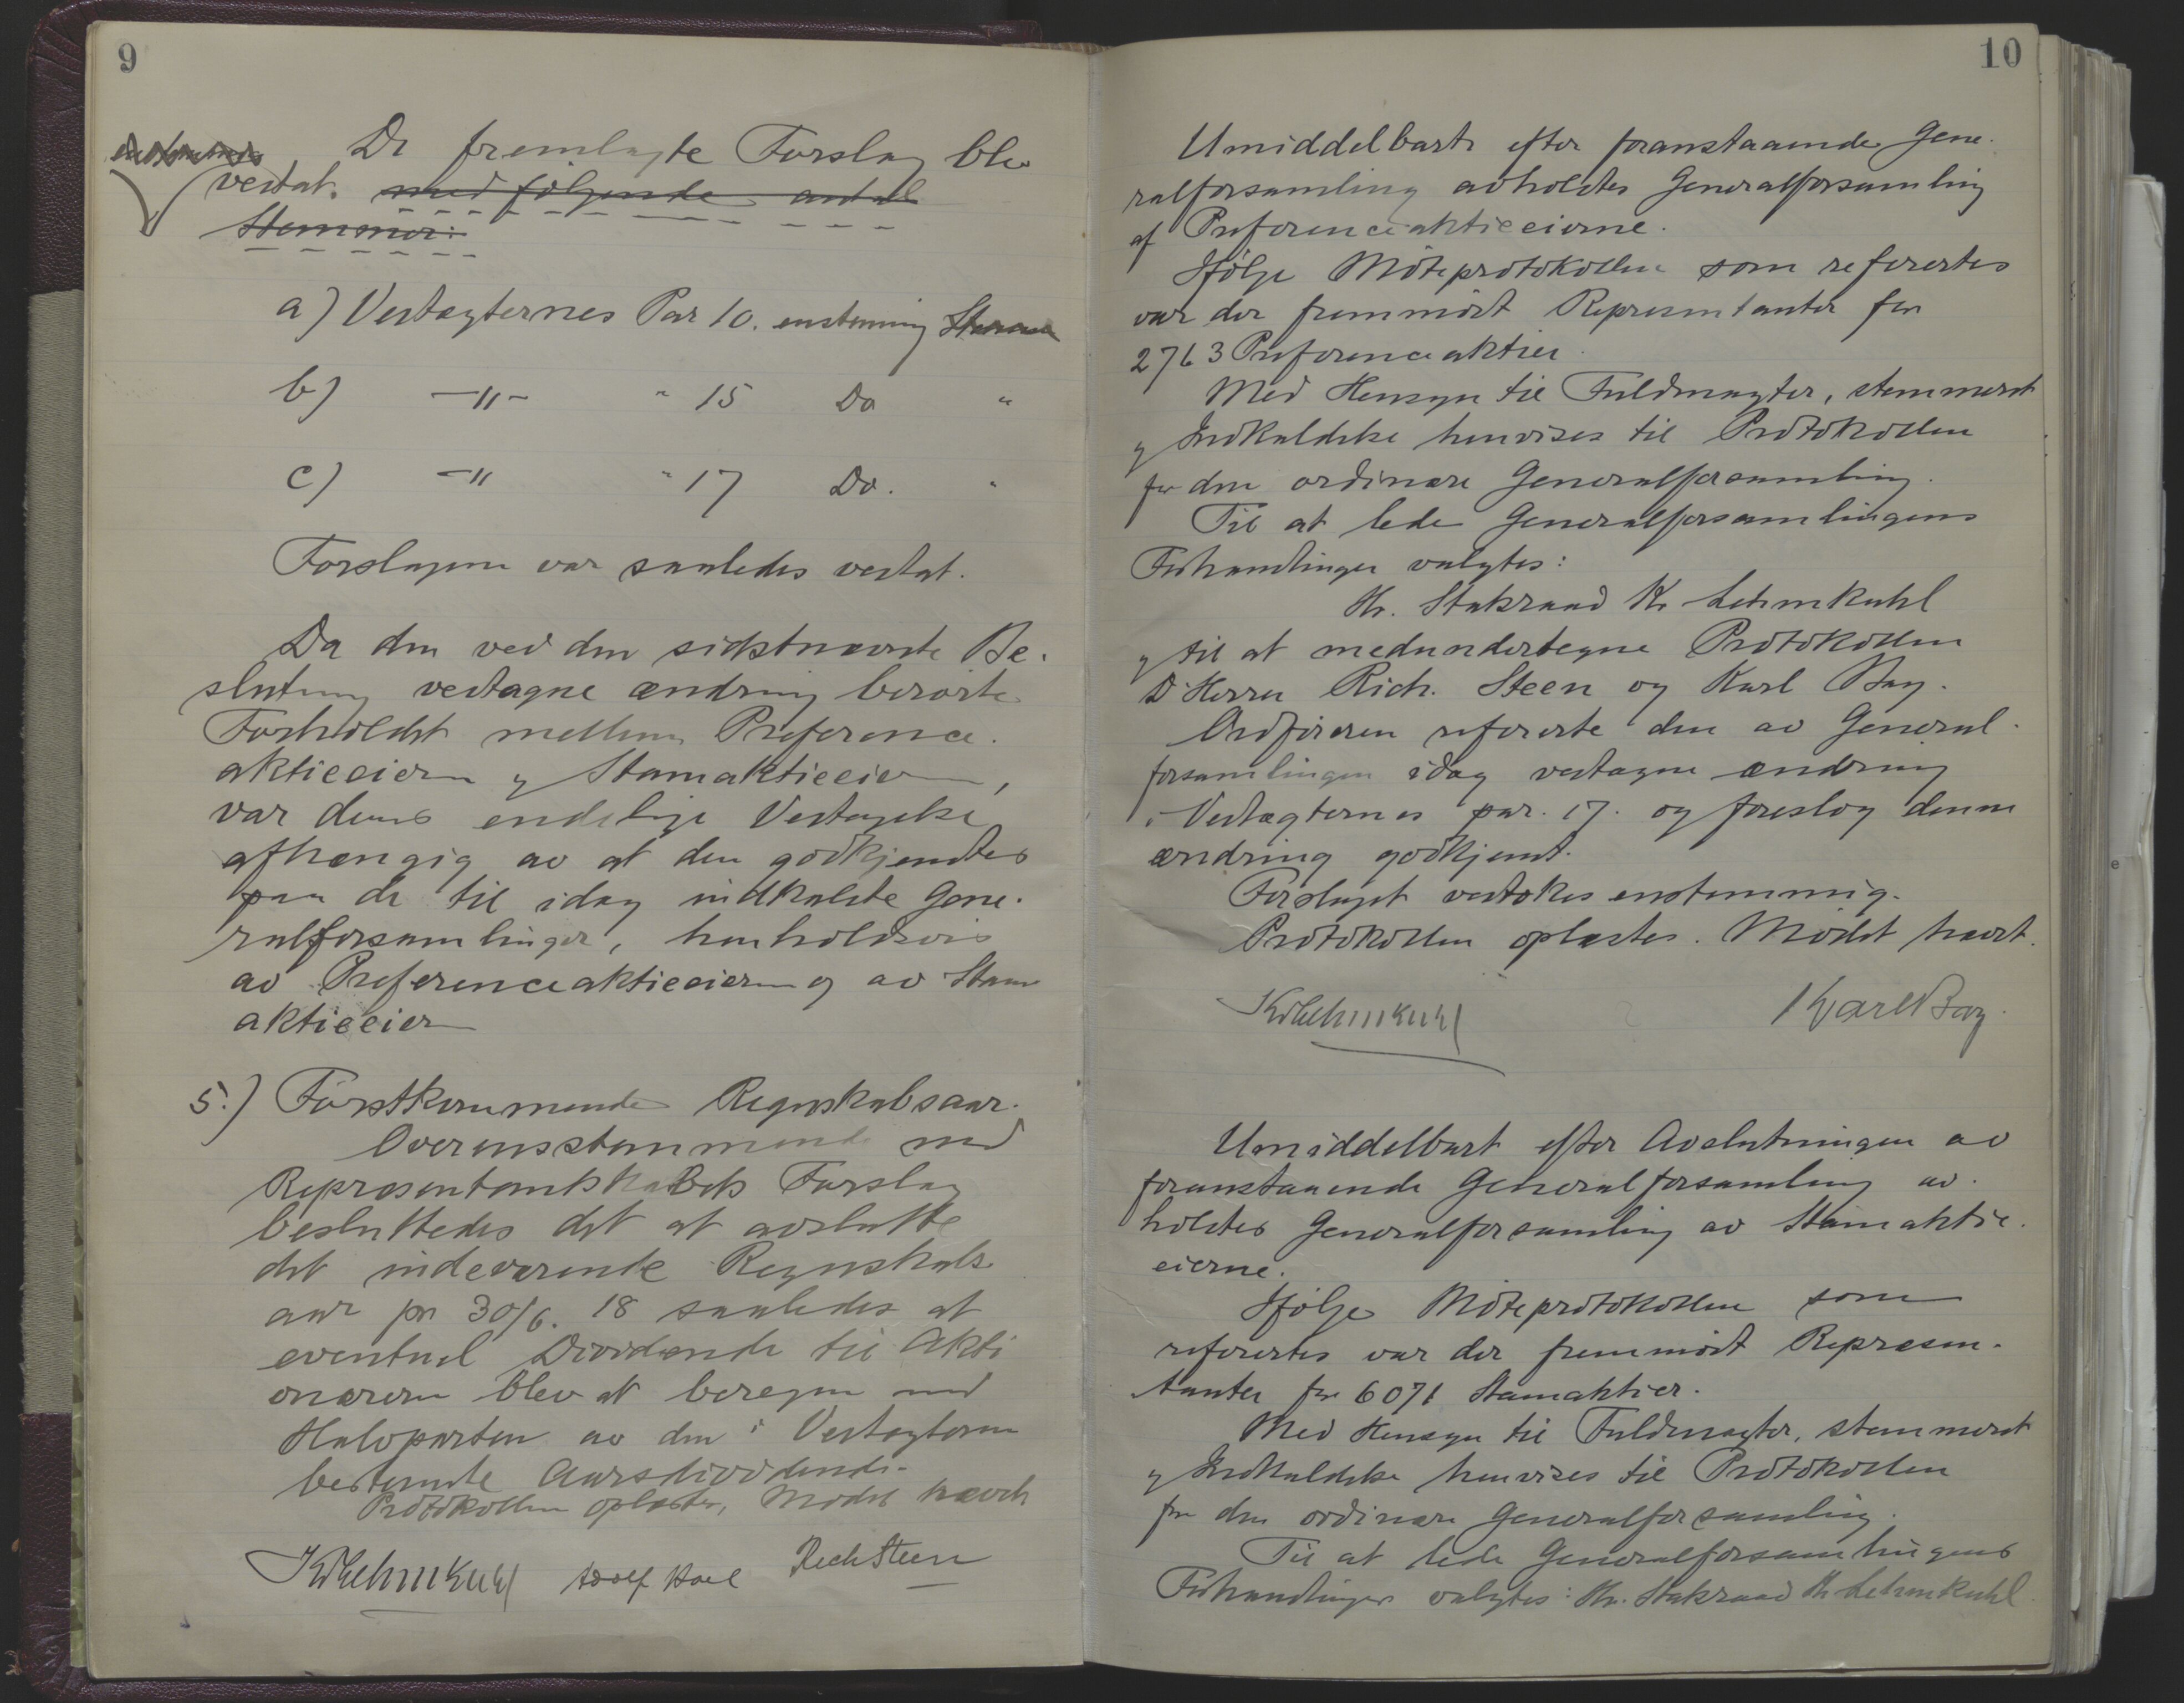 9
De fremlagte Forslag blev
vedtat. med følgende antal
Stemmer:
a) Vedtægternes Par 10. enstemmig Stemmer
b) -"- " 15 Do "
c) -" " 17 Do. "
Forslagene var saaledes vedtat.
Da den ved den sidstnævnte Be-
slutning vedtagne ændring berørte
Forholdet mellem Preference-
aktieeierne og Stamaktieeierne,
var dens endelige Vedtagelse
afhængig av at den godkjendtes
paa de til idag indkaldte Gene-
ralforsamlinger, henholdsvis
av Preferenceaktieeierne og av Stam
aktieeierne
5.) Førstkommende Regnskabsaar.
Overensstemmende med
Representantskabets Forslag
besluttedes det at avslutte
det indeværende Regnskabs
aar pr 30/6. 18 saaledes at
eventuel Dividende til Akti
onærerne blev at beregne med
Halvparten av den i Vedtægterne
bestemte Aarsdividende.
Protokollen oplæstes, Mødet hævet
KrLehmkuhl Adolf Hoel Rich Steen
10
Umiddelbart efter foranstaaende Gene-
ralforsamling avholdtes Generalforsamling
af Preferenceaktieeierne.
Ifølge Møteprotokollen som referertes
var der fremmødt Representanter for
2763 Preferenceaktier.
Med Hensyn til Fuldmagter, stemmeret
og Indkaldelse henvises til Protokollen
for den ordinære Generalforsamling.
Til at lede Generalforsamlingens
Forhandlinger valgtes:
Hr. Statsraad Kr Lehmkuhl
og til at medundertegne Protokollen
D'Herrer Rich. Steen og Karl Bay.
Ordføreren refererte den av General-
forsamlingen idag vedtagne ændring
i Vedtægternes par. 17. og foreslog denne
ændring godkjent.
Forslaget vedtokes enstemmig.
Protokollen oplæstes. Mødet hævet.
KrLehmkuhl Karl Bay.
Umiddelbart efter Avslutningen av
foranstaaende Generalforsamling av-
holdtes Generalforsamling av Stamaktie-
eierne.
Ifølge Møteprotokollen som
referertes var der fremmødt Represen-
tanter for 6071 Stamaktier.
Med Hensyn til Fuldmagter, stemmeret
og Indkaldelse henvises til Protokollen
for den ordinære Generalforsamling.
Til at lede Generalforsamlingens
Forhandlinger valgtes: Hr. Statsraad Kr Lehmkuhl.